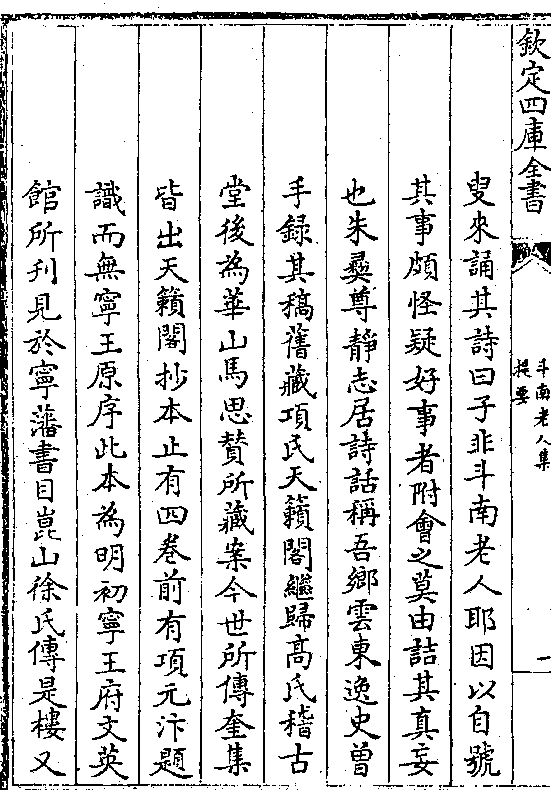 欽定四庫全書
斗南老人集
提要
一
叟來誦其詩曰子非斗南老人耶因以自號
其事頗怪疑好事者附會之莫由詰其真妄
也朱彝尊靜志居詩話稱吾鄉雲東逸史曾
手録其稿舊藏項氏天籟閣繼歸高氏稽古
堂後為華山馬思贊所藏案今世所傳奎集
皆出天籟閣抄本止有四卷前有項元汴題
識而無寧王原序此本為明初寧王府文英
館所刊見於寧藩書目崑山徐氏傳是樓又